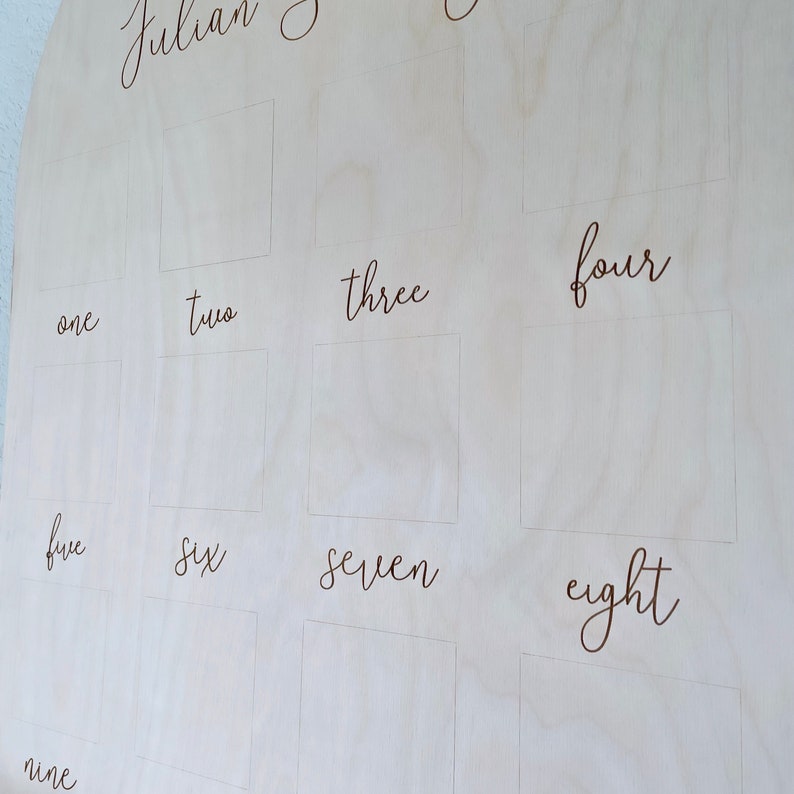 Julian
one two three four
five six seven eight
nine